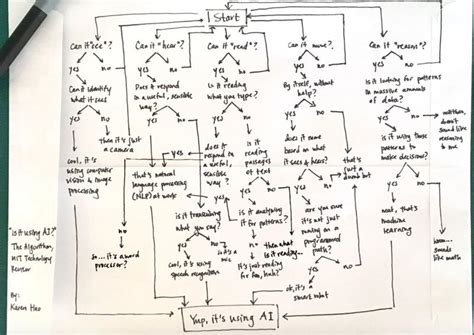 Start
Can it "see"?
yes
no
Can it identify
what it sees
yes
no
then it's just
a camera
cool, it's
using computer
vision & image
processing
Can it "hear"?
yes
no
Does it respond
in a useful, sensible
way?
yes
no
that's natural
language processing
(NLP) at work
is it transcribing
what you say?
no
yes
so... it's a
mic
cool, it's using
speech recognition
so... it's a word
processor?
Can it "read"?
yes
no
Is it reading
what you type?
yes
no
does it
respond in
a useful,
sensible
way?
yes
no
is it
reading
passages
of text
yes
no
is it analyzing
it for patterns?
no
yes
then what
is it reading...
it's just reading
for fun, huh?
Can it move?
yes
no
By itself, without
help?
yes
no
does it move
based on what
it sees & hears?
yes
no
that's
just a
dumb bot
are you sure
it's not just
running on a
programmed
path?
yes
no
ok, it's a
smart robot
Can it "reason"?
yes
no
Is it looking for patterns
in massive amounts
of data?
yes
no
doesn't
sound like
reasoning
to me
is it using those
patterns to
make decisions?
yes
no
neat, that's
machine
learning
hmm...
sounds
like math
Yup, it's using AI
"is it using AI?"
The Algorithm,
MIT Technology
Review
By:
Karen Hao